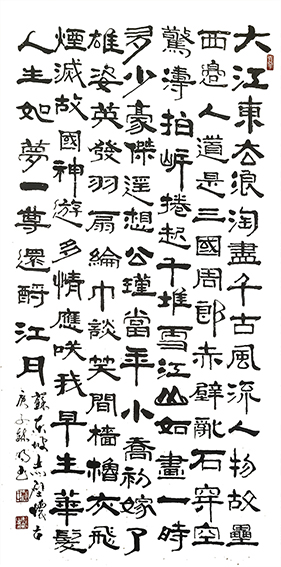 大江東去浪淘盡千古風流人物故壘
西邊人道是三國周郎赤壁亂石穿空
驚濤拍岸捲起千堆雪江山如畫一時
多少豪傑遙想公瑾當年小喬初嫁了
雄姿英發羽扇綸巾談笑間檣櫓灰飛
煙滅故國神遊多情應咲我早生華髮
人生如夢一尊還酹江月
蘇東坡赤壁懷古